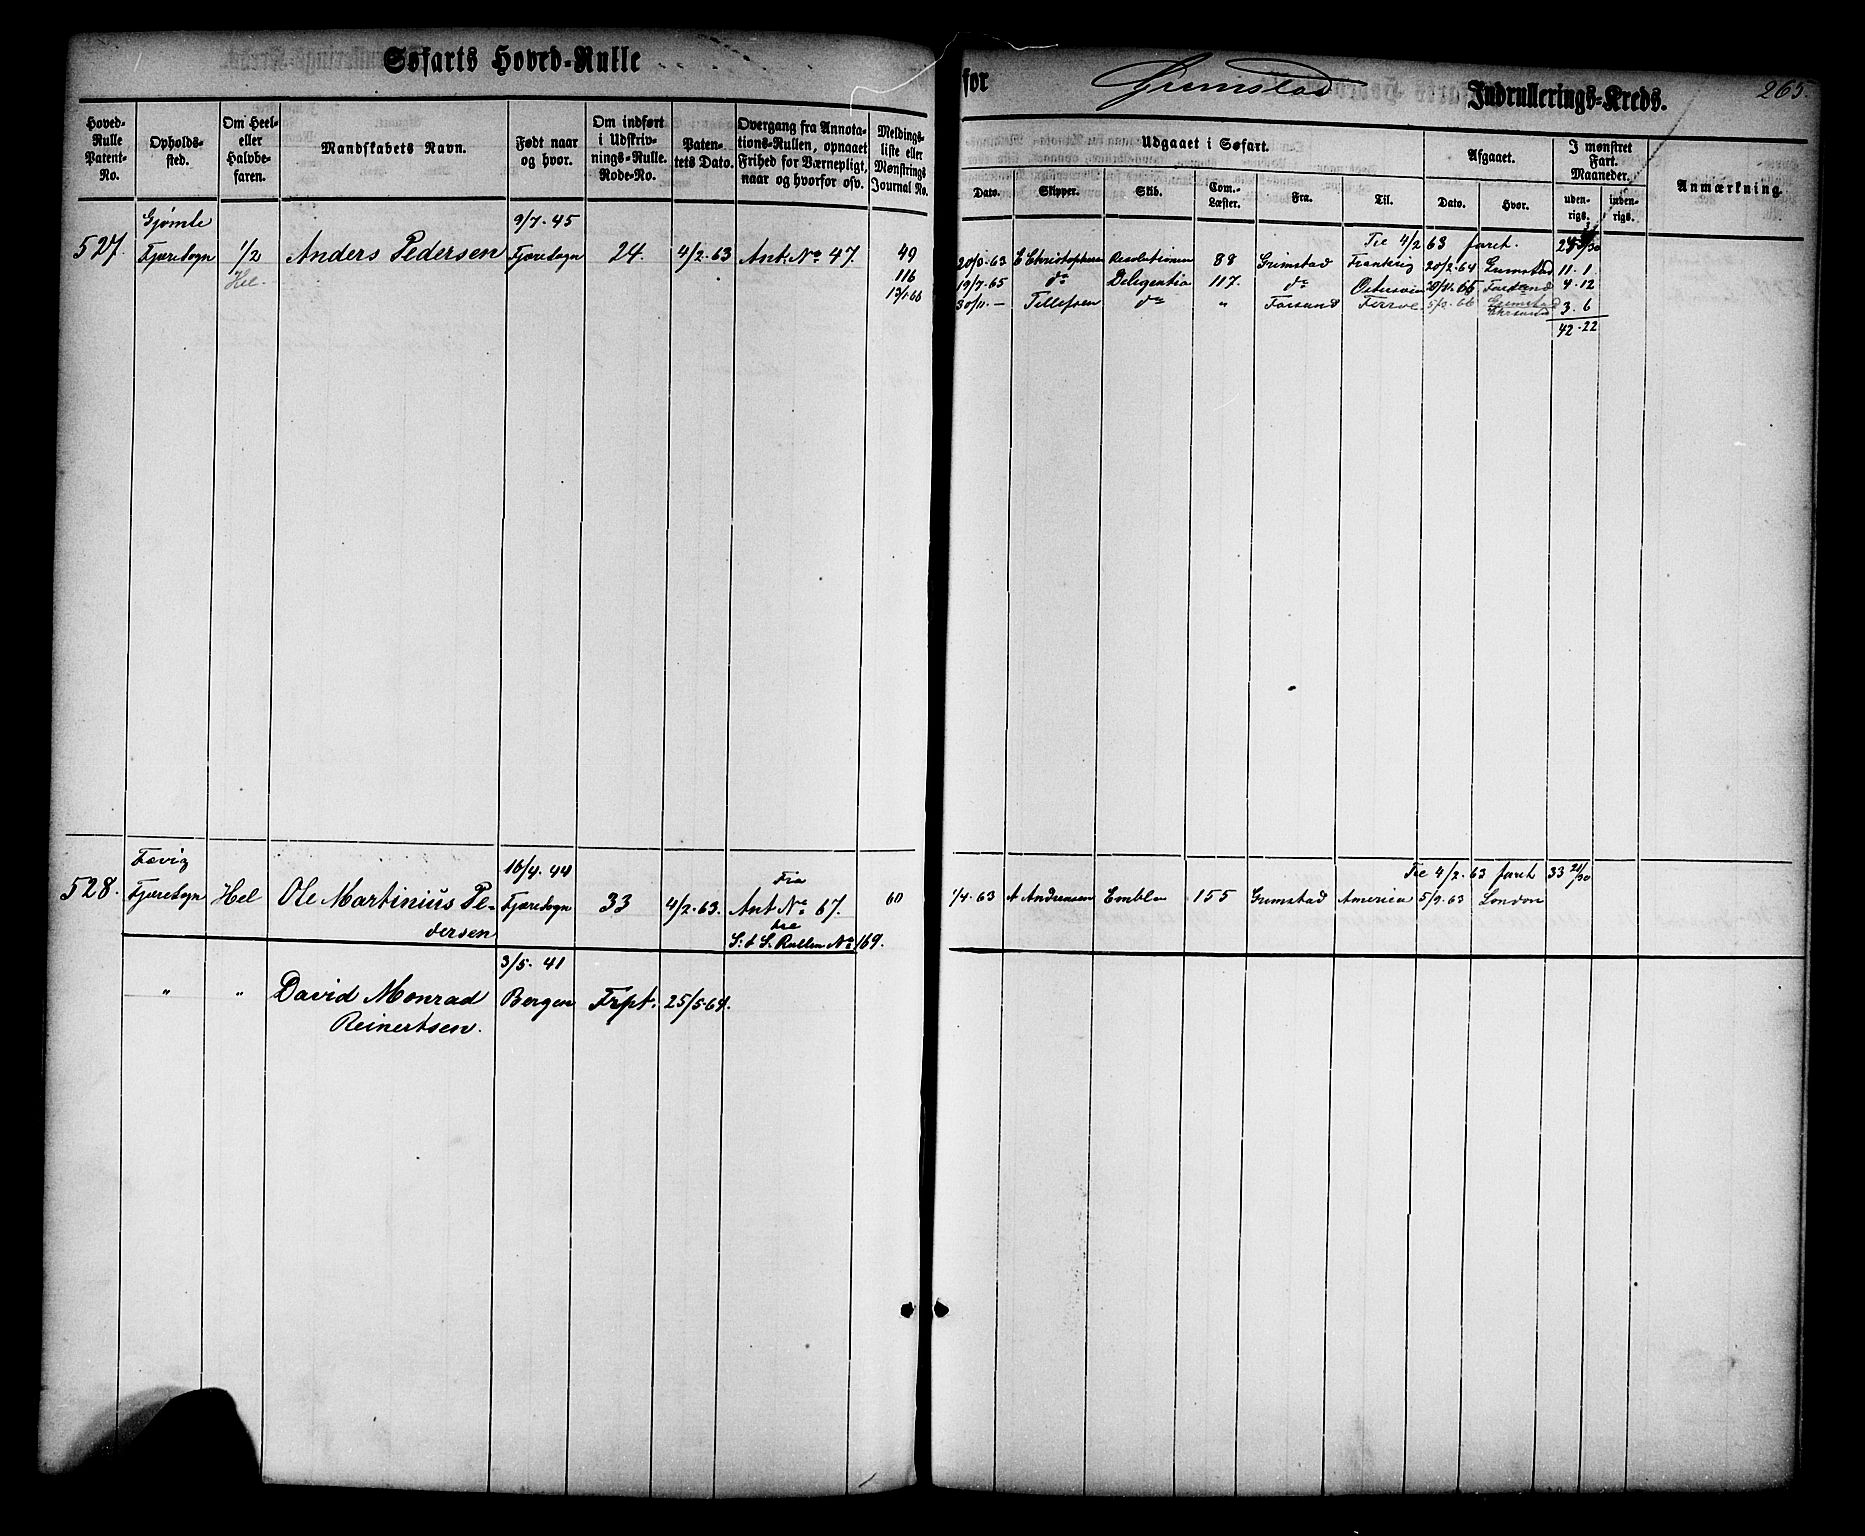 Søfarts Hoved-Rulle
for Grimstad Indrullerings-Kreds.
265.
Hoved-Rulle Patent-No.
Opholds-sted.
Om Heel- eller Halvbe-faren.
Mandskabets Navn.
Født naar og hvor.
Om indført i Udskriv-nings-Rulle. Rode-No.
Paten-tets Dato.
Overgang fra Annota-tions-Rullen, opnaaet Frihed for Værnepligt, naar og hvorfor osv.
Meldings-liste eller Mønstrings Journal No.
Udgaaet i Søfart.
Dato.
Skipper.
Skib.
Com.-Læster.
Fra.
Til.
Afgaaet.
Dato.
Hvor.
I mønstret Fart. Maaneder.
uden-rigs.
inden-rigs.
Anmærkning.
Gjømle 9/7. 45
527. Fjæresogn 1/2 Anders Pedersen Fjæresogn 24. 4/2. 63 Ant: No 47. 49
Hel. 116
Til 4/2 63 faret.
20/3. 63 E Christophersen Resolutionen 88 Grimstad Frankrig 20/2. 64 Grimstad 11. 1.
19/7. 65 do Deligentia 117. do 65 4. 12
30/11. — Tellefsen do " 66 Grimstad 3. 6
42. 22
Fævig 16/4. 44
528. Fjæresogn Hel Ole Martinius Pe- Fjæresogn 33 4/2. 63. Fra Ant No 67. 60
dersen til
S: & S. Rullen No 169.
Til 4/2. 63 faret 33 21/30
1/4. 63 A Andreasen Embla 155 Grimstad America 5/9. 63 London
3/5. 41
" " David Monrad Bergen Frpt. 25/5. 64.
Reinertsen.